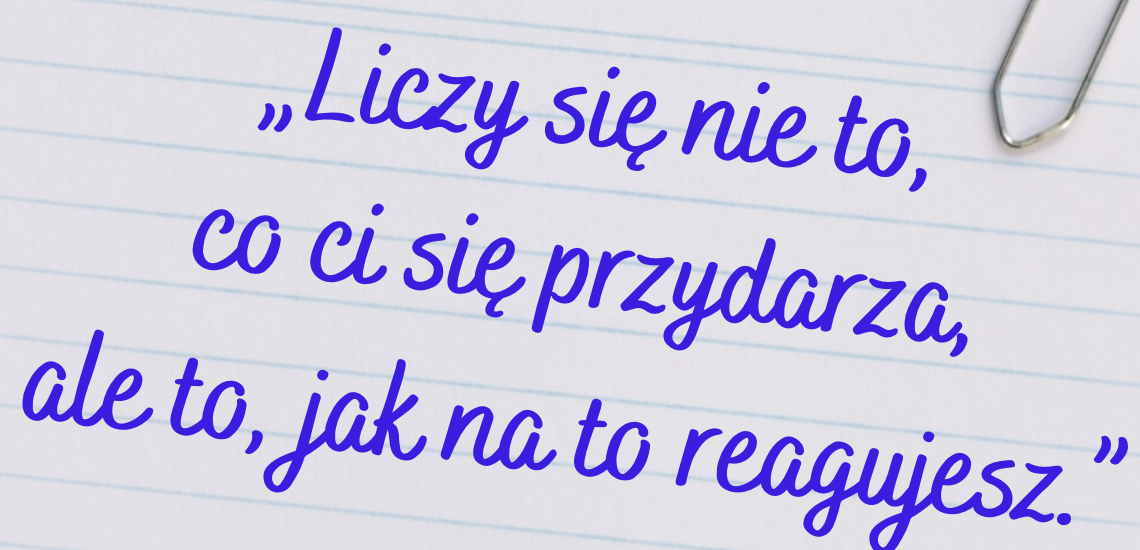 „Liczy się nie to,
co ci się przydarza,
ale to, jak na to reagujesz.”